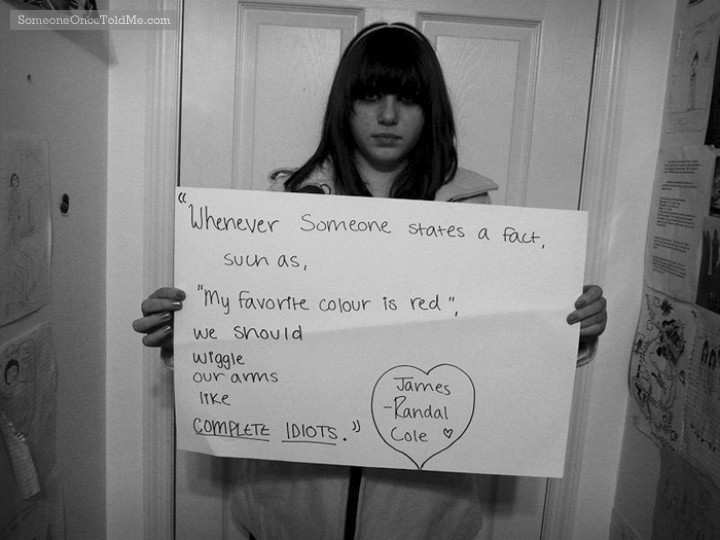 SomeoneOnceToldMe.com
"Whenever Someone states a fact,
such as,
"My favorite colour is red",
we should
wiggle
our arms
like
COMPLETE IDIOTS."
James
-Randal
Cole ♡